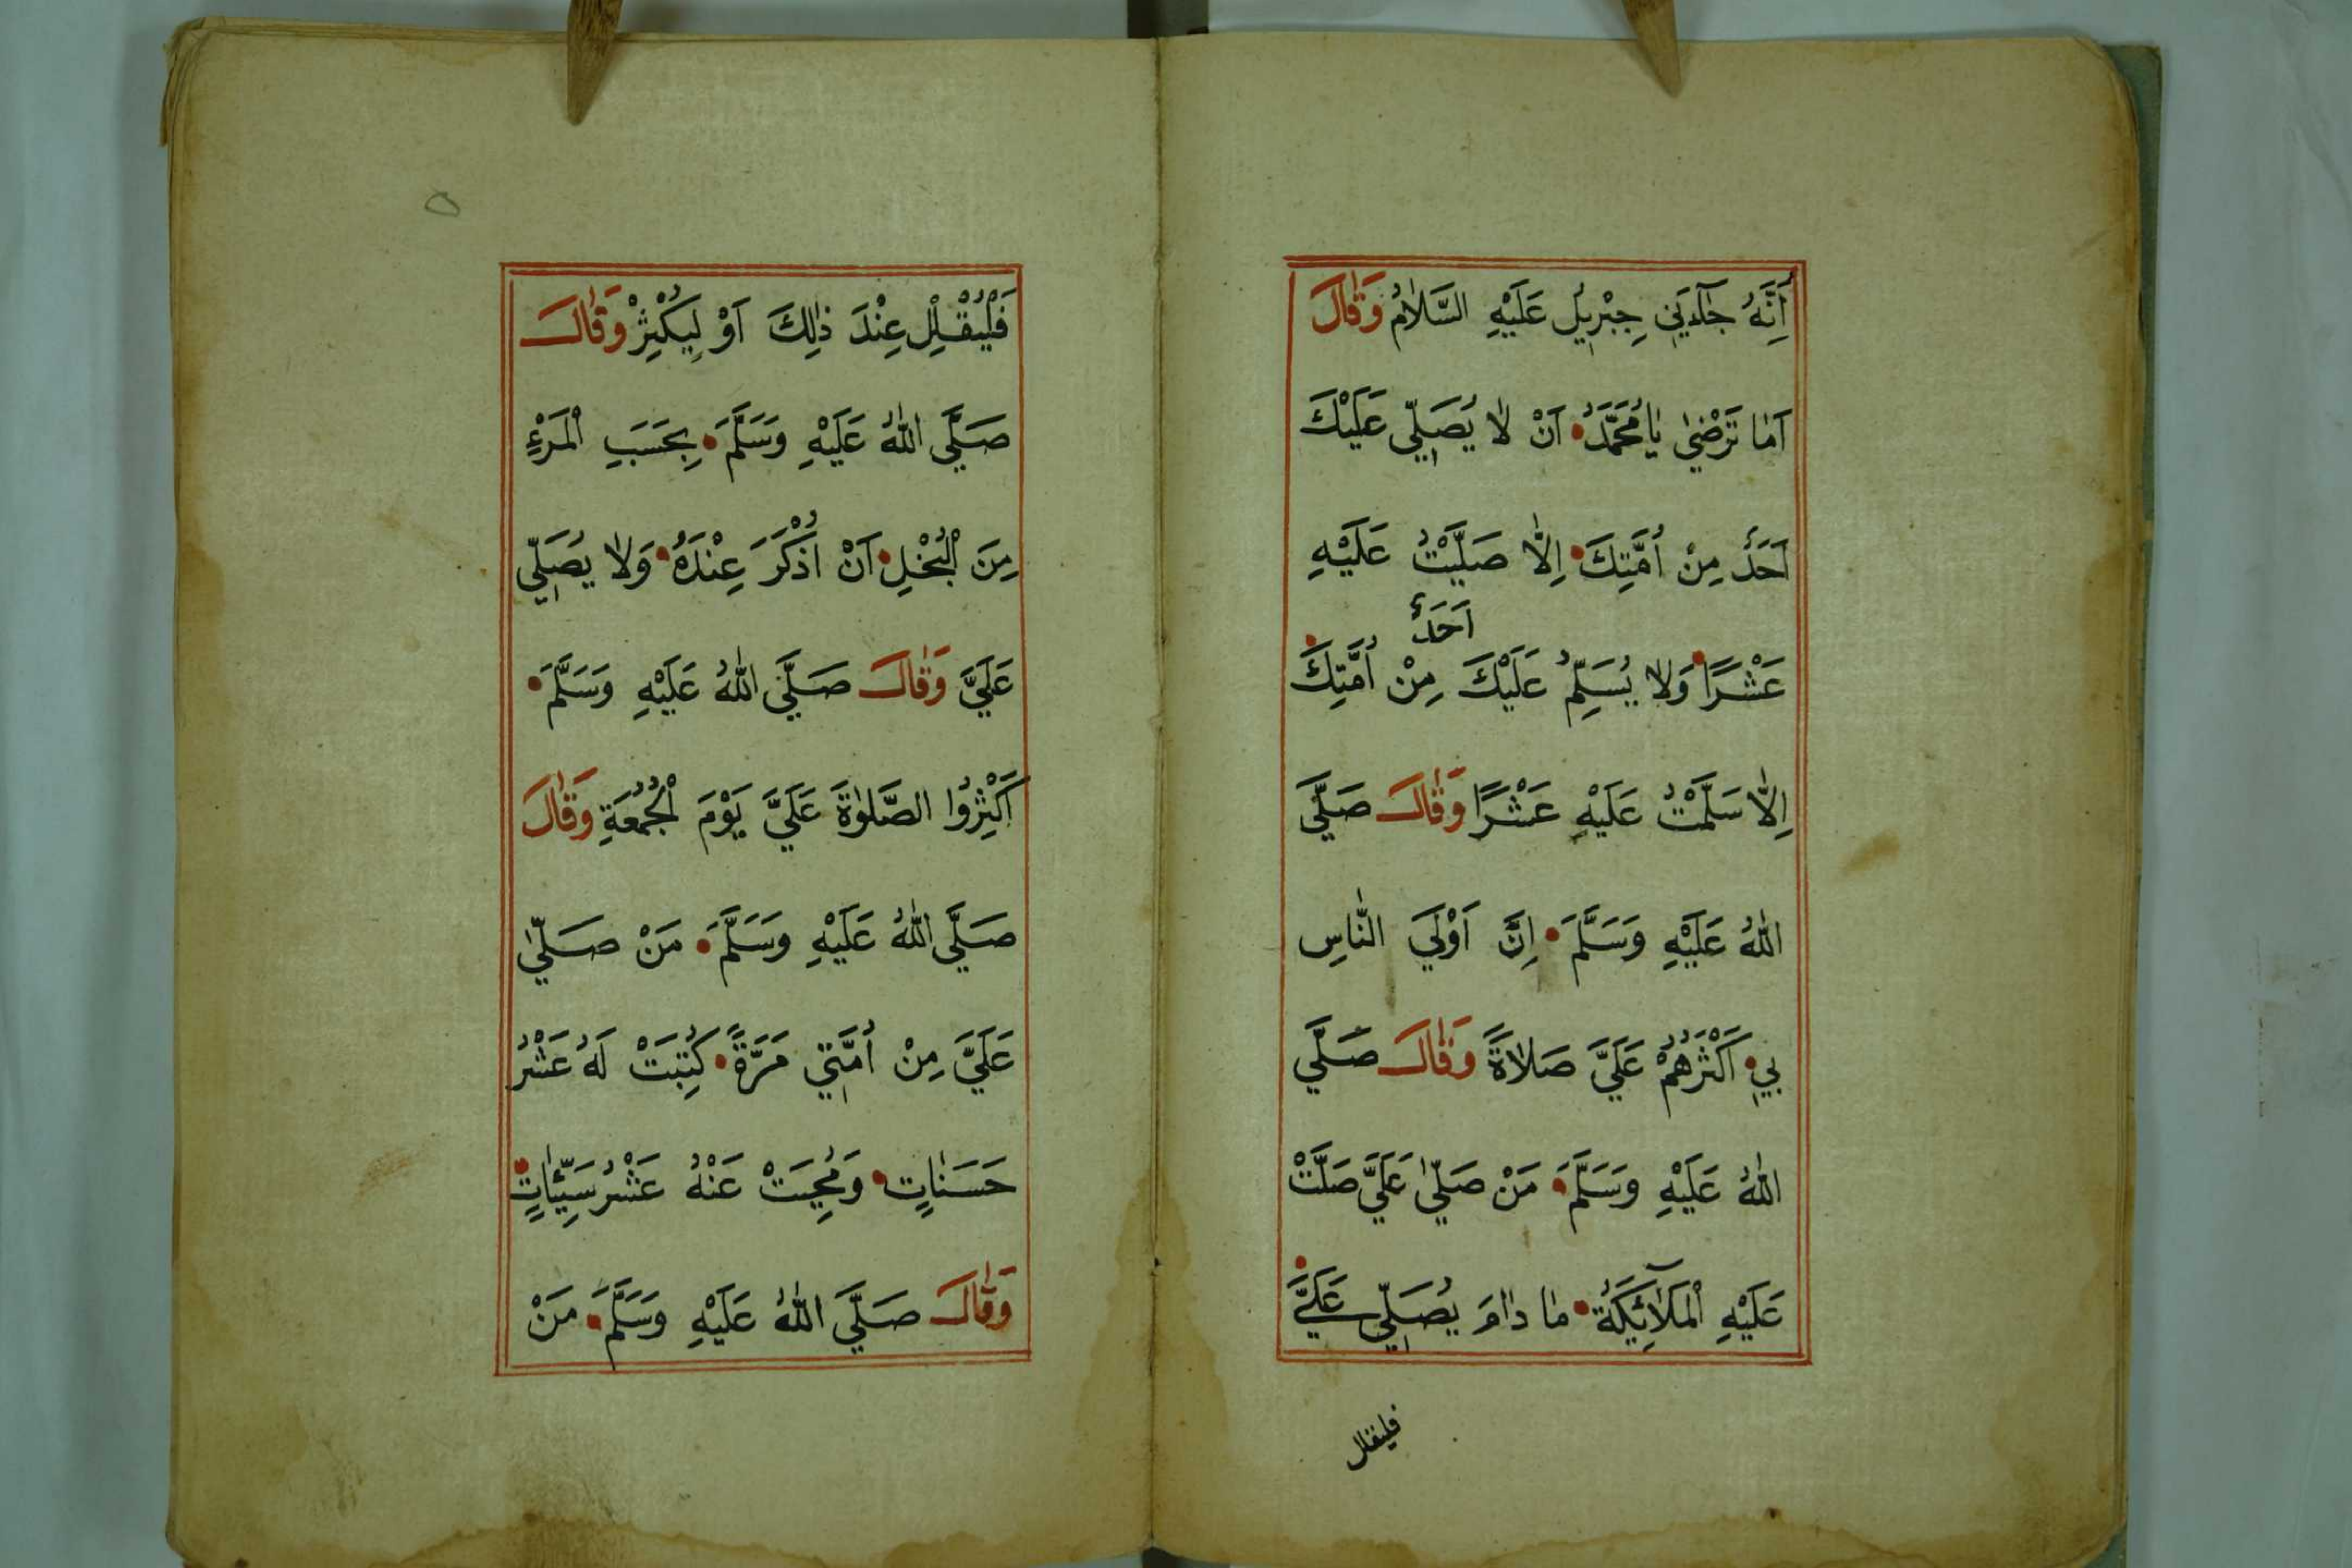 أَنَّهُ جَآءَنِي جِبْرِيلُ عَلَيْهِ السَّلَامُ وَقَالَ
اَمَا تَرْضٰي يَا مُحَمَّدُ اَنْ لَا يُصَلِّي عَلَيْكَ
اَحَدٌ مِنْ اُمَّتِكَ اِلَّا صَلَّيْتُ عَلَيْهِ
اَحَدٌ
عَشْرًا وَلَا يُسَلِّمُ عَلَيْكَ مِنْ اُمَّتِكَ
اِلَّا سَلَّمْتُ عَلَيْهِ عَشْرًا وَقَالَ صَلَّي
اللهُ عَلَيْهِ وَسَلَّمَ اِنَّ اَوْلَي النَّاسِ
بِي اَكْثَرُهُمْ عَلَيَّ صَلَاةً وَقَالَ صَلَّي
اللهُ عَلَيْهِ وَسَلَّمَ مَنْ صَلّٰي عَلَيَّ صَلَّتْ
عَلَيْهِ الْمَلَآئِكَةُ مَا دَامَ يُصَلِّي عَلَيَّ
فليقلل
فَلْيُقْلِلْ عِنْدَ ذٰلِكَ اَوْ لِيُكْثِرْ وَقَالَ
صَلَّي اللهُ عَلَيْهِ وَسَلَّمَ بِحَسَبِ الْمَرْءِ
مِنَ الْبُخْلِ اَنْ اُذْكَرَ عِنْدَهُ وَلَا يُصَلِّي
عَلَيَّ وَقَالَ صَلَّي اللهُ عَلَيْهِ وَسَلَّمَ
اَكْثِرُوا الصَّلٰوةَ عَلَيَّ يَوْمَ الْجُمُعَةِ وَقَالَ
صَلَّي اللهُ عَلَيْهِ وَسَلَّمَ مَنْ صَلّٰي
عَلَيَّ مِنْ اُمَّتِي مَرَّةً كُتِبَتْ لَهُ عَشْرُ
حَسَنَاتٍ وَمُحِيَتْ عَنْهُ عَشْرُ سَيِّئَاتٍ
وَقَالَ صَلَّي اللهُ عَلَيْهِ وَسَلَّمَ مَنْ